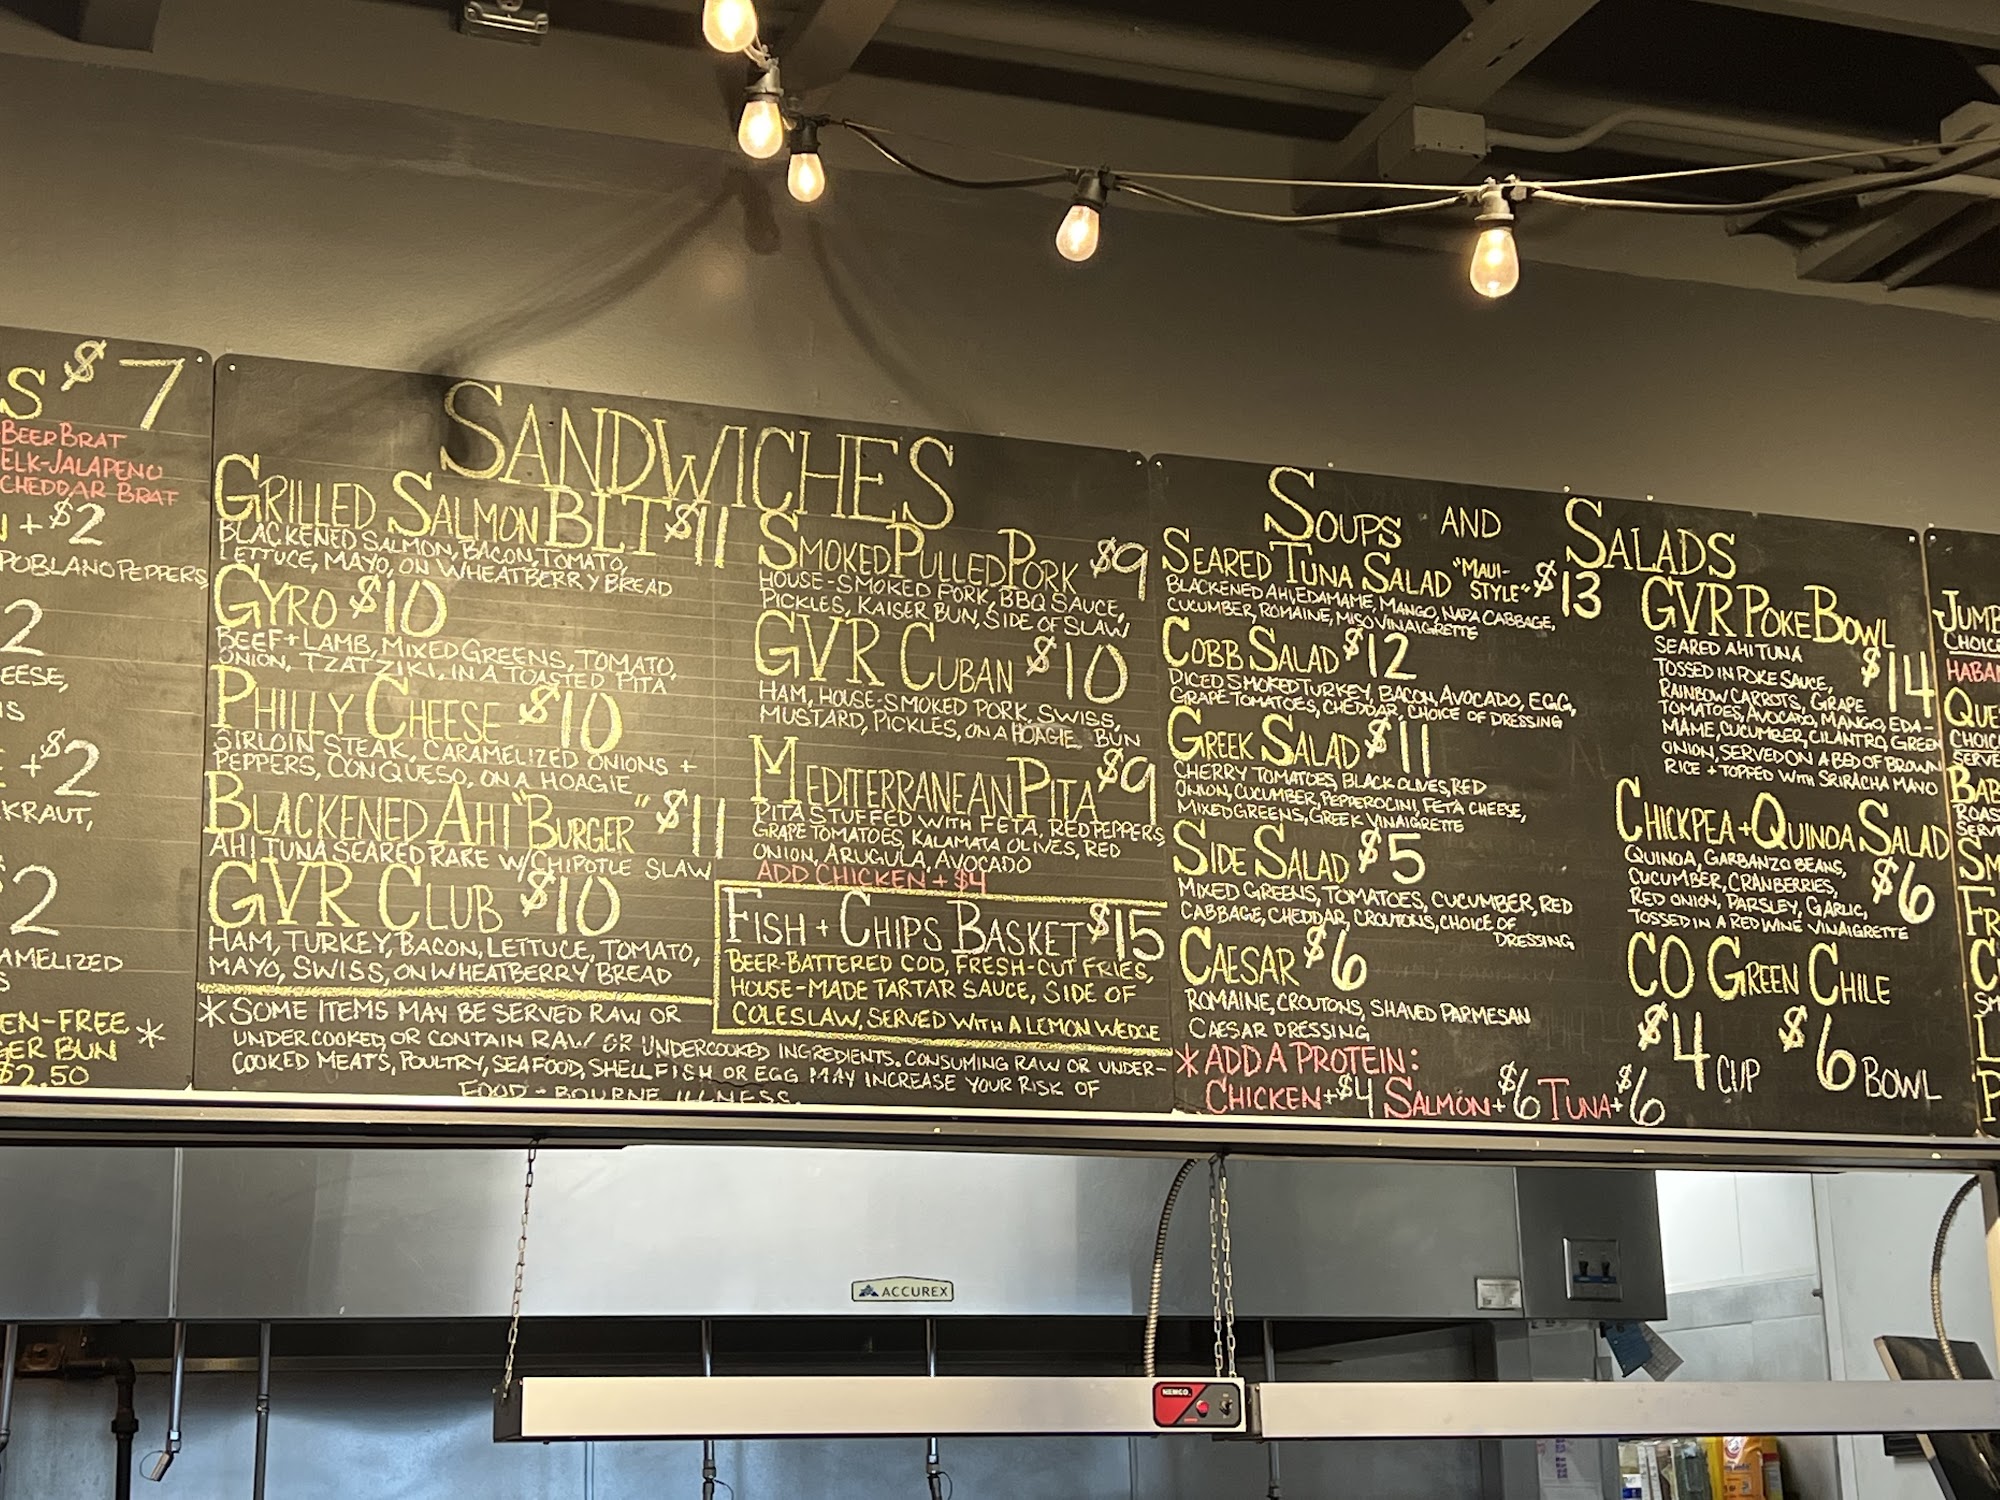 S $7
BEER BRAT
ELK-JALAPENO
CHEDDAR BRAT
+ $2
POBLANO PEPPERS
2
+ $2
KRAUT,
$2
EN-FREE *
BUN
$2.50
SANDWICHES
GRILLED SALMON BLT $11
BLACKENED SALMON, BACON, TOMATO,
LETTUCE, MAYO, ON WHEATBERRY BREAD
GYRO $10
BEEF + LAMB, MIXED GREENS, TOMATO,
ONION, TZATZIKI, IN A TOASTED PITA
PHILLY CHEESE $10
SIRLOIN STEAK, CARAMELIZED ONIONS +
PEPPERS, CON QUESO, ON A HOAGIE
BLACKENED AHI "BURGER" $11
AHI TUNA SEARED RARE W/ CHIPOTLE SLAW
GVR CLUB $10
HAM, TURKEY, BACON, LETTUCE, TOMATO,
MAYO, SWISS, ON WHEATBERRY BREAD
SMOKED PULLED PORK $9
HOUSE-SMOKED PORK, BBQ SAUCE,
PICKLES, KAISER BUN, SIDE OF SLAW
GVR CUBAN $10
HAM, HOUSE-SMOKED PORK, SWISS,
MUSTARD, PICKLES, ON A HOAGIE BUN
MEDITERRANEAN PITA $9
PITA STUFFED WITH FETA, RED PEPPERS,
GRAPE TOMATOES, KALAMATA OLIVES, RED
ONION, ARUGULA, AVOCADO
ADD CHICKEN + $4
FISH + CHIPS BASKET $15
BEER-BATTERED COD, FRESH-CUT FRIES,
HOUSE-MADE TARTAR SAUCE, SIDE OF
COLESLAW, SERVED WITH A LEMON WEDGE
* SOME ITEMS MAY BE SERVED RAW OR
UNDERCOOKED, OR CONTAIN RAW OR UNDERCOOKED INGREDIENTS. CONSUMING RAW OR UNDER-
COOKED MEATS, POULTRY, SEAFOOD, SHELLFISH OR EGG MAY INCREASE YOUR RISK OF
FOOD-BOURNE ILLNESS.
SOUPS AND SALADS
SEARED TUNA SALAD "MAUI-STYLE" $13
BLACKENED AHI, EDAMAME, MANGO, NAPA CABBAGE,
CUCUMBER, ROMAINE, MISO VINAIGRETTE
COBB SALAD $12
DICED SMOKED TURKEY, BACON, AVOCADO, EGG,
GRAPE TOMATOES, CHEDDAR, CHOICE OF DRESSING
GREEK SALAD $11
CHERRY TOMATOES, BLACK OLIVES, RED
ONION, CUCUMBER, PEPPEROCINI, FETA CHEESE,
MIXED GREENS, GREEK VINAIGRETTE
SIDE SALAD $5
MIXED GREENS, TOMATOES, CUCUMBER, RED
CABBAGE, CHEDDAR, CROUTONS, CHOICE OF
DRESSING
CAESAR $6
ROMAINE, CROUTONS, SHAVED PARMESAN
CAESAR DRESSING
* ADD A PROTEIN:
CHICKEN +$4 SALMON +$6 TUNA +$6
GVR POKE BOWL
$14
SEARED AHI TUNA
TOSSED IN POKE SAUCE,
RAINBOW CARROTS, GRAPE
TOMATOES, AVOCADO, MANGO, EDA-
MAME, CUCUMBER, CILANTRO, GREEN
ONION, SERVED ON A BED OF BROWN
RICE + TOPPED WITH SRIRACHA MAYO
CHICKPEA + QUINOA SALAD
$6
QUINOA, GARBANZO BEANS,
CUCUMBER, CRANBERRIES,
RED ONION, PARSLEY, GARLIC,
TOSSED IN A RED WINE VINAIGRETTE
CO GREEN CHILE
$4 CUP $6 BOWL
ACCUREX
NEMCO